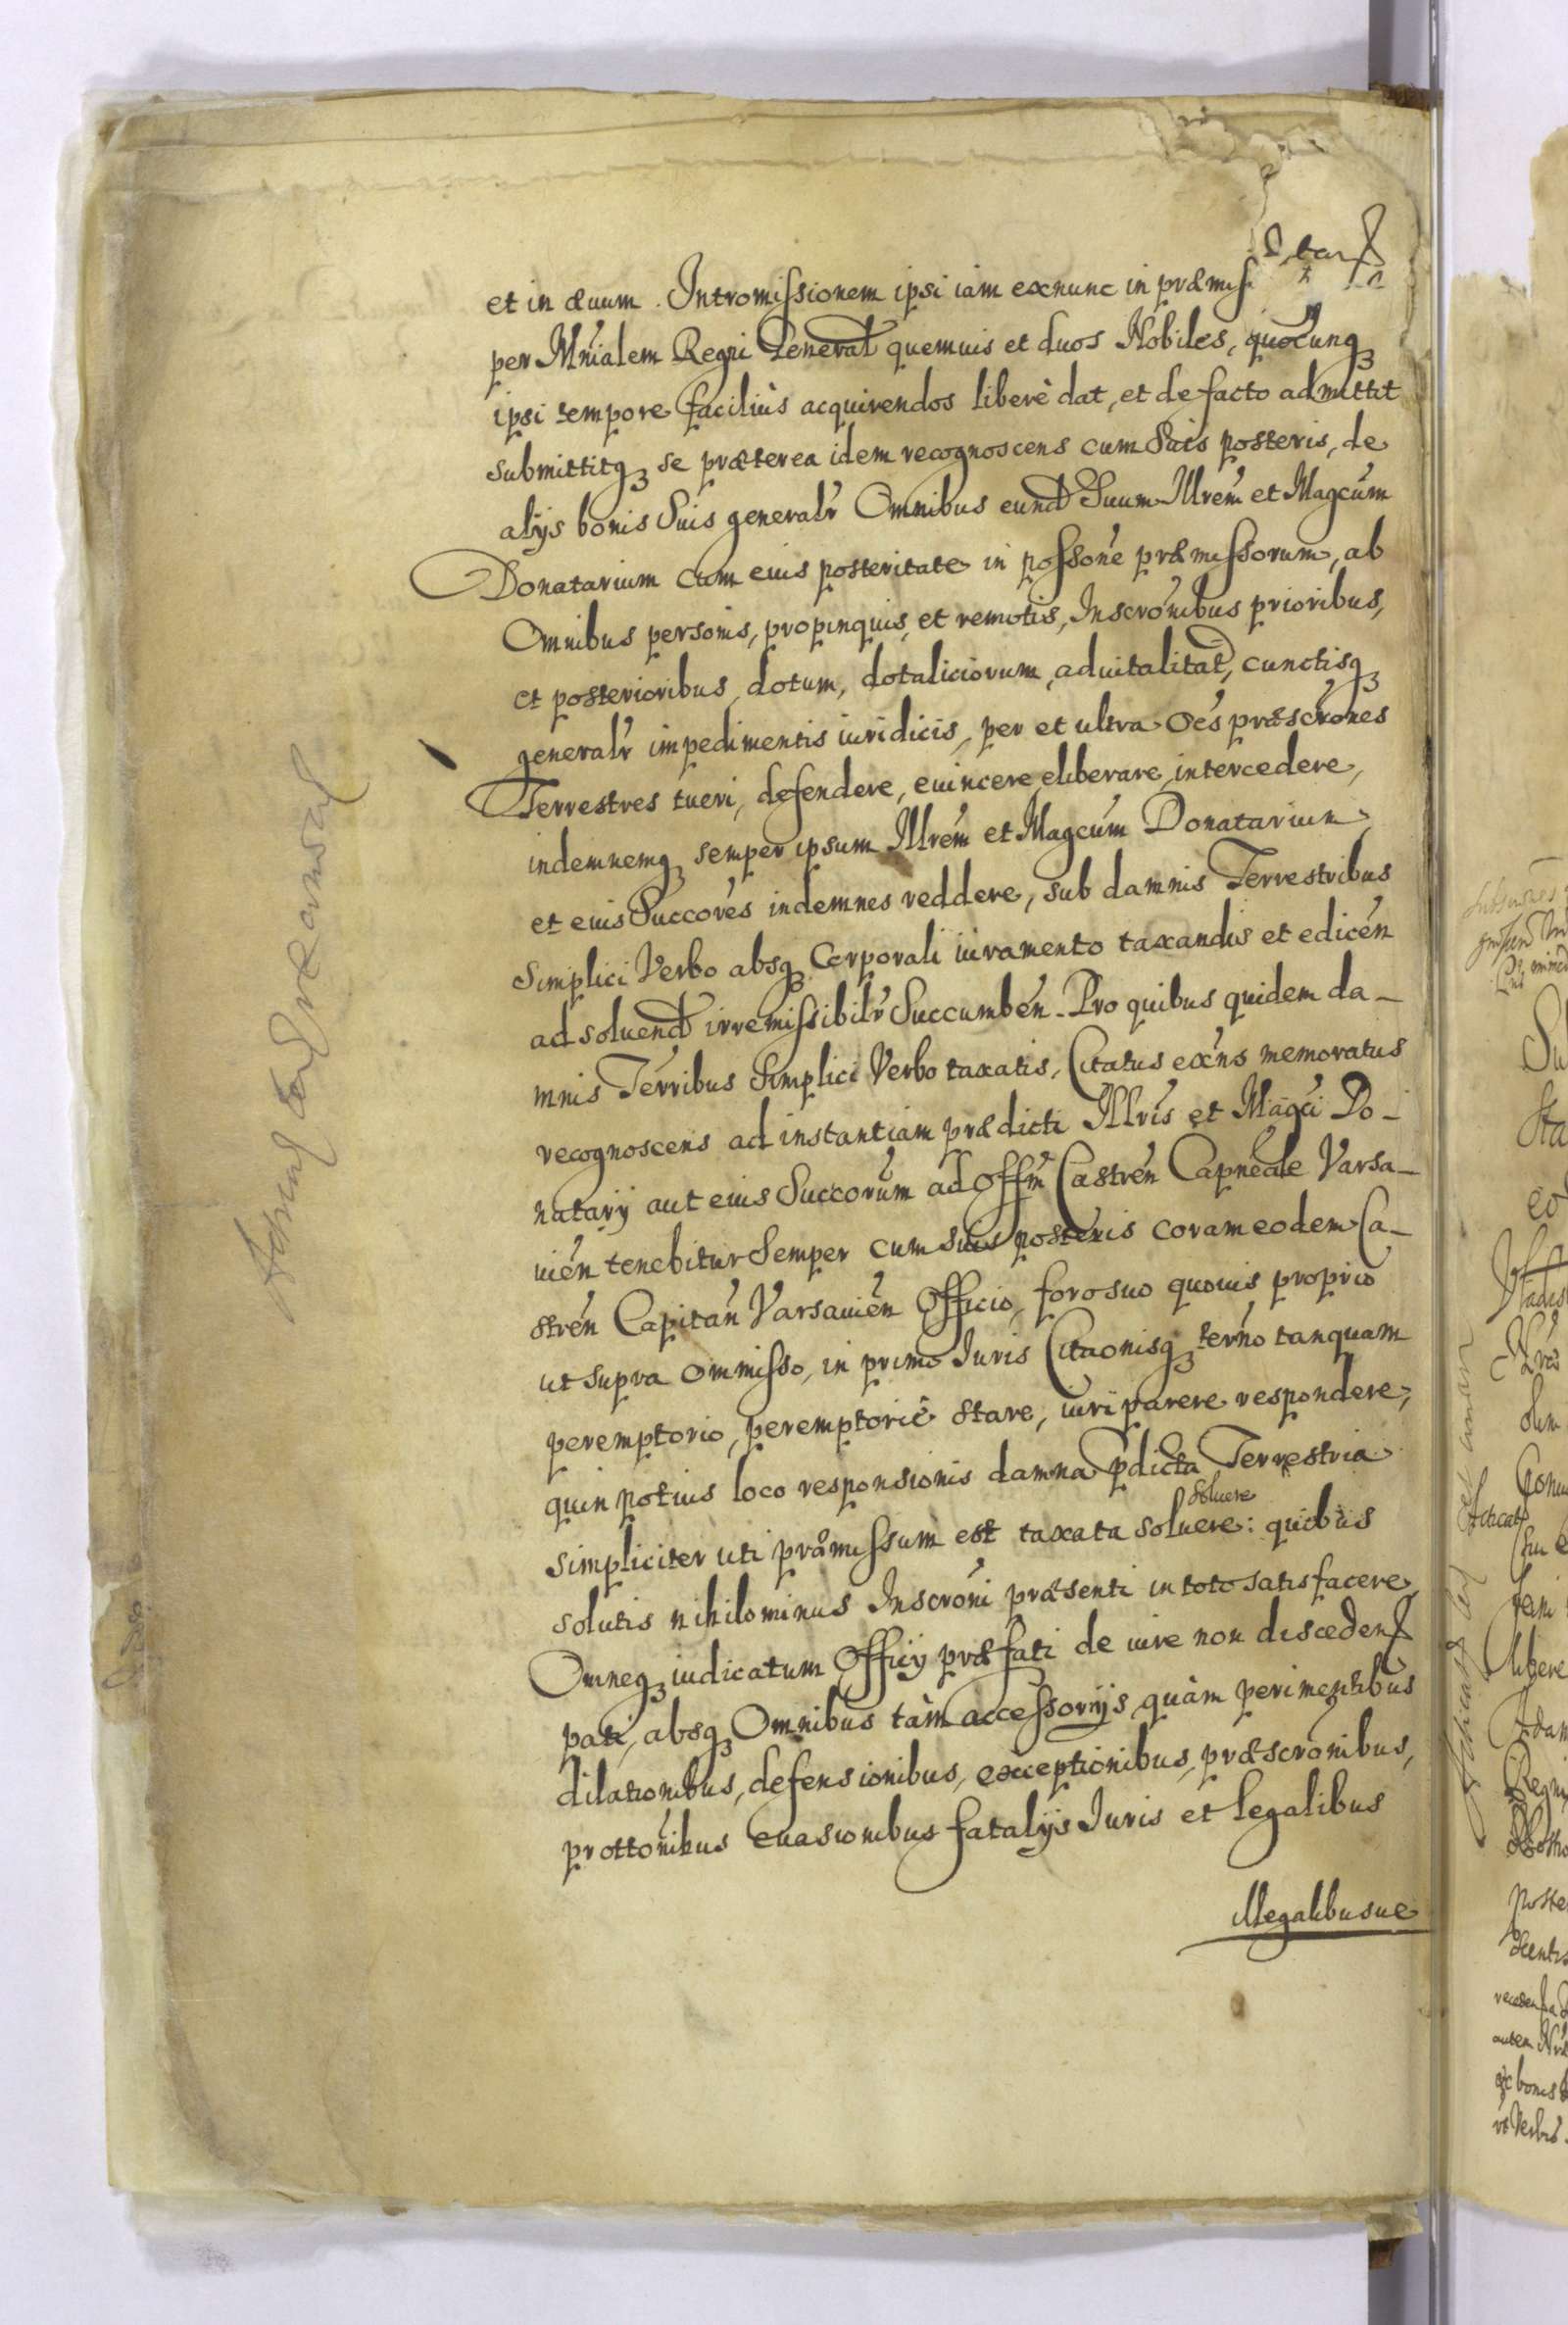 et in æuum. Intromissionem ipsi iam exnunc in præmiss
per Mńialem Regni Generał quemuis et duos Nobiles, quocunqꝫ
ipsi tempore faciliùs acquirendos liberè dat, et de facto admittit
submittitqꝫ se præterea idem recognoscens cum Suis posteris, de
alÿs bonis Suis generalr̃ Omnibus eund Suum Illrem̃ et Magcum̃
Donatarium cum eius posteritate in possone præmissorum, ab
Omnibus personis, propinquis, et remotis, Inscronibus prioribus,
et posterioribus, dotum, dotaliciorum, aduitalitat, cunctisqꝫ
generalr̃ impedimentis iuridicis, per et ultra oes præscrones
Terrestres tueri, defendere, euincere, eliberare, intercedere,
indemnemqꝫ semper ipsum Illrem̃ et Magcum̃ Donatarium,
et eius Succores indemnes reddere, sub damnis Terrestribus
Simplici Verbo absqꝫ Corporali iuramento taxandis et edicen
ad soluend irremissibilr̃ Succumben. Pro quibus quidem da-
mnis Terribus Simplici Verbo taxatis, Citatus exns memoratus
recognoscens ad instantiam prædicti Illris et Magci Do-
natarÿ aut eius Succorum ad Offm̃ Castren Capneale Varsa-
uien tenebitur Semper cum suis posteris coram eodem Ca-
stren Capitan Varsauien Officio, foro suo quouis proprio
ut supra ommisso, in primo Iuris Citaonisqꝫ terno tanquam
peremptorio, peremptoriè stare, iuri parere respondere,
quin potius loco responsionis damna pdicta Terrestria
soluere
simpliciter uti præmissum est taxata soluere: quibus
solutis nihilominus Inscroni præsenti in toto satisfacere,
Omneqꝫ iudicatum Officÿ præfati de iure non disceden
pati, absqꝫ Omnibus tàm accessorÿs quàm perimentibus
dilationibus, defensionibus, exceptionibus, præscronibus,
prottonibus euasionibus fatalÿs Iuris et legalibus
illegalibusue